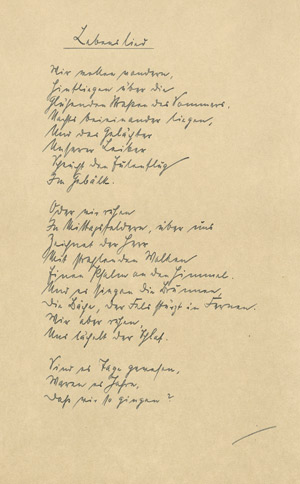 Lebenslied
Wir wollen wandern,
Hinfliegen über die
Glühenden Matten des Sommers.
Nachts beieinander liegen,
Und das Gelächter
Unserer Leiber
Scheucht den Eulenflug
Im Gebälk.
Oder wir ruhen
In Mittagsfeldern, über uns
Zeichnet der Herr
Mit strahlenden Wolken
Einen Psalm an den Himmel.
Und es singen die Brunnen,
Die Bäche, der Fels stürzt in Fernen.
Wir aber ruhen.
Uns lächelt der Schlaf.
Sind es Tage gewesen,
Waren es Jahre,
Daß wir so gingen?